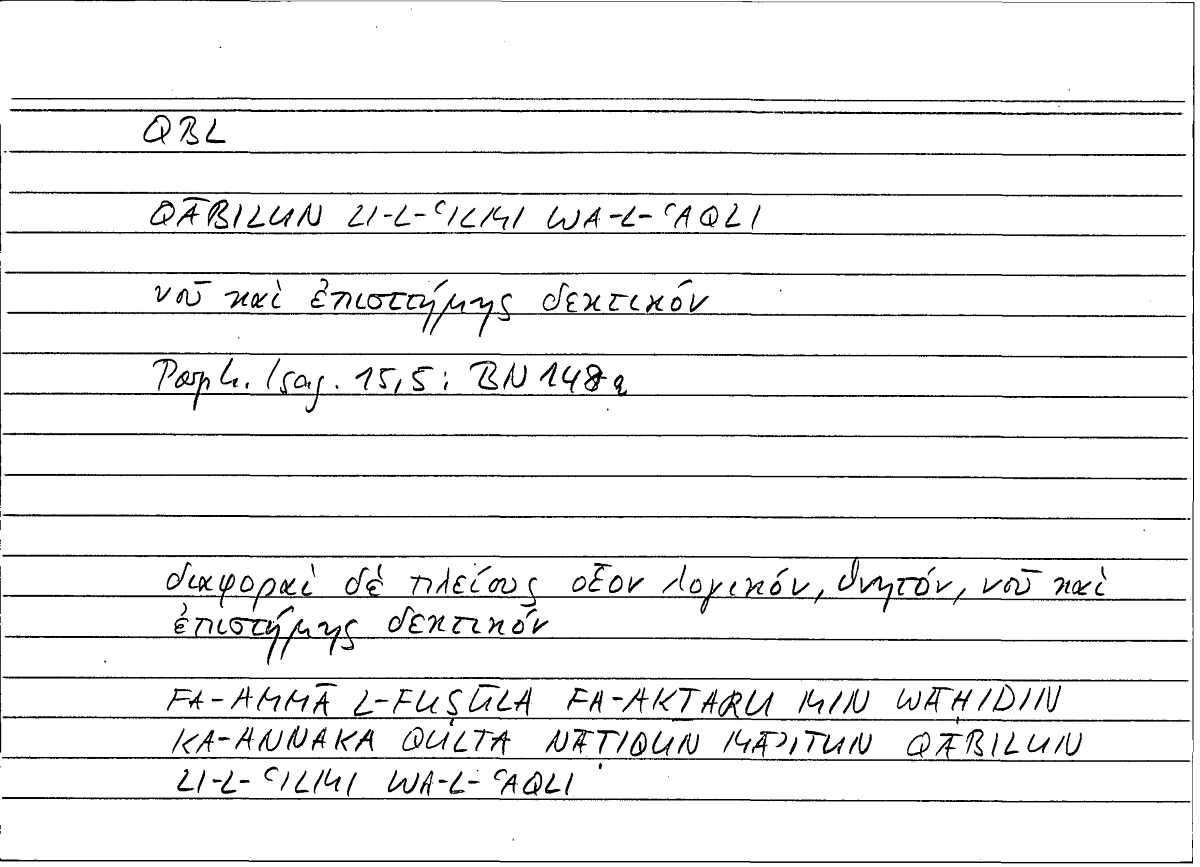 QBL
QĀBILUN LI-L-ʿILMI WA-L-ʿAQLI
νοῦ καὶ ἐπιστήμης δεκτικόν
Porph. Isag. 15,5: BN 148a
διαφοραὶ δὲ πλείους οἷον λογικόν, θνητόν, νοῦ καὶ
ἐπιστήμης δεκτικόν
FA-AMMĀ L-FUṢŪLA FA-AKṮARU MIN WĀḤIDIN
KA-ANNAKA QULTA NĀṬIQUN MĀʾITUN QĀBILUN
LI-L-ʿILMI WA-L-ʿAQLI